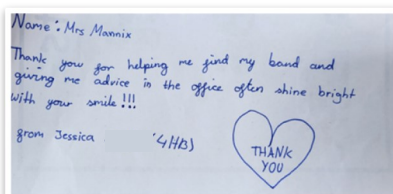 Name: Mrs Mannix
Thank you for helping me find my band and
giving me advice in the office often shine bright
with your smile!!!
from Jessica
(4HB)
THANK
YOU